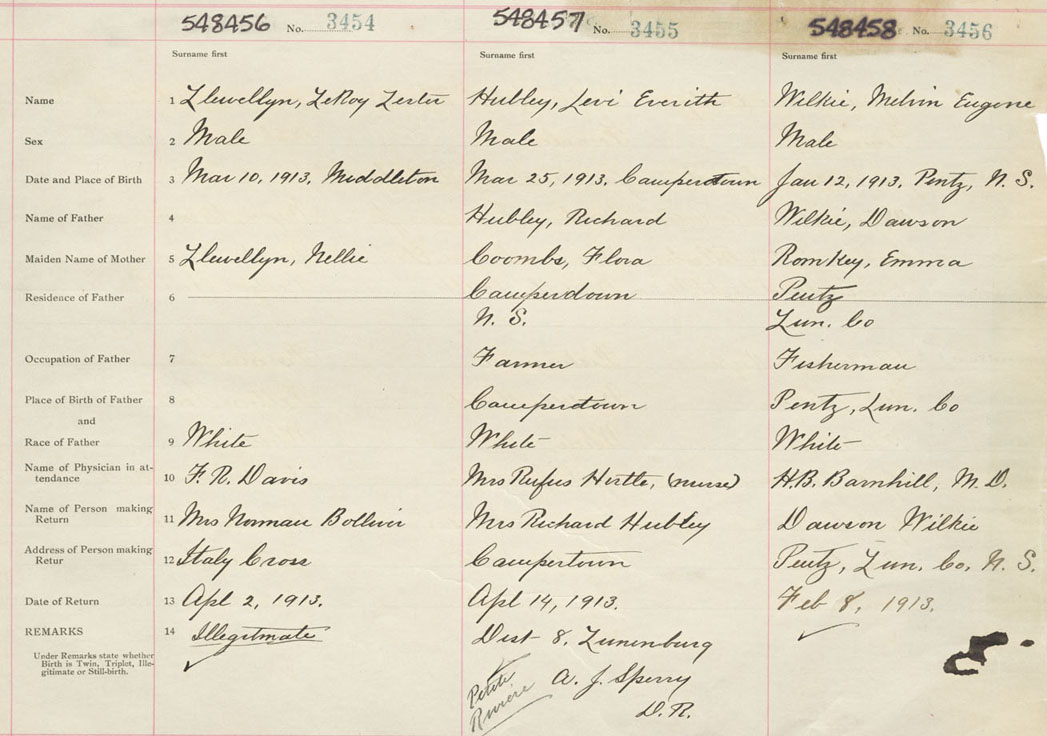 548456 No. 3454 548457 No. 3455 548458 No. 3456
Surname first Surname first Surname first
Name 1 Llewellyn, LeRoy Lester Hubley, Levi Everith Wilkie, Melvin Eugene
Sex 2 Male Male Male
Date and Place of Birth 3 Mar 10, 1913. Middleton Mar 25, 1913. Camperdown Jan 12, 1913. Pentz, N. S.
Name of Father 4 Hubley, Richard Wilkie, Dawson
Maiden Name of Mother 5 Llewellyn, Nellie Coombs, Flora Romkey, Emma
Residence of Father 6 Camperdown Pentz
N. S. Lun. Co
Occupation of Father 7 Farmer Fisherman
Place of Birth of Father 8 Camperdown Pentz, Lun. Co
and
Race of Father 9 White White White
Name of Physician in at-
tendance 10 F. R. Davis Mrs Rufus Hirtle, (nurse) H.B. Barnhill, M. D.
Name of Person making
Return 11 Mrs Norman Bolliver Mrs Richard Hubley Dawson Wilkie
Address of Person making
Retur 12 Italy Cross Campertown Pentz, Lun. Co, N. S.
Date of Return 13 Apl 2, 1913. Apl 14, 1913. Feb 8, 1913.
REMARKS 14 Illegitmate Dist 8, Lunenburg
Under Remarks state whether
Birth is Twin, Triplet, Ille-
gitimate or Still-birth.
Petite
Riviere
A. J. Sperry
D. R.